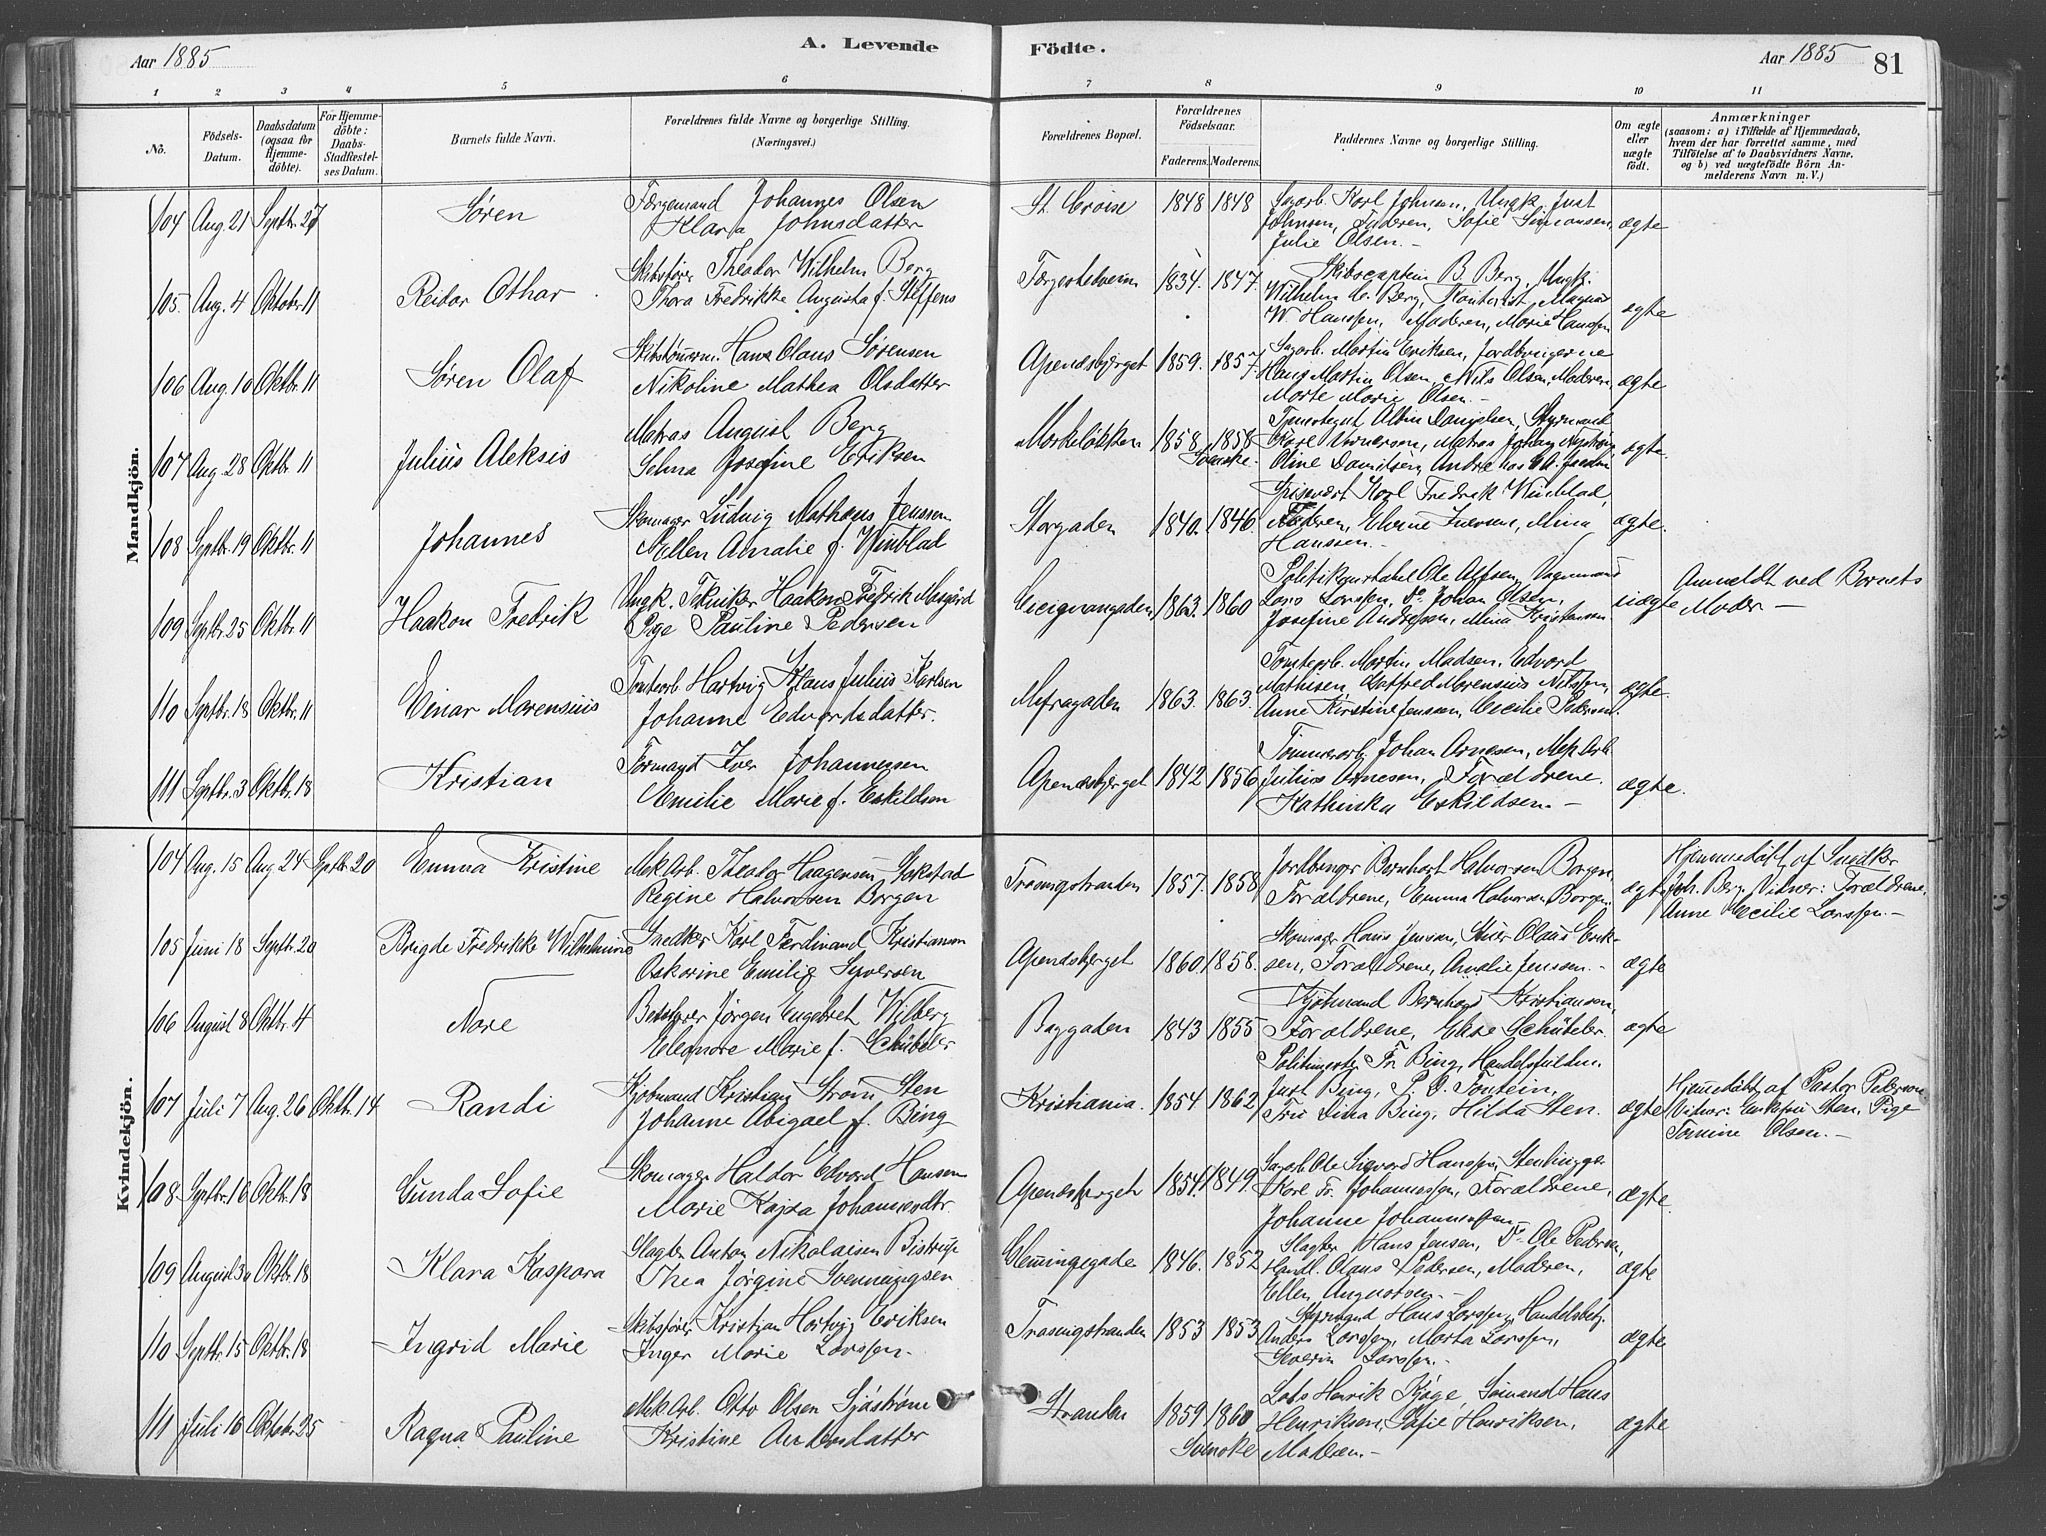 Aar 1885
A. Levende
Födte.
Aar 1885
81
1 2 3 4 5 6 7 8 9 10 11
No.
Födsels-Datum.
Daabsdatum (ogsaa for Hjemmedöbte).
For Hjemmedöbte: Daabs-Stadfæstelses Datum.
Barnets fulde Navn.
Forældrenes fulde Navne og borgerlige Stilling.
(Næringsvei.)
Forældrenes Bopæl.
Forældrenes Födselsaar.
Faderens. Moderens.
Faddernes Navne og borgerlige Stilling.
Om ægte eller uægte födt.
Anmærkninger
(saasom: a) i Tilfælde af Hjemmedaab, hvem der har forrettet samme, med Tilföielse af to Daabsvidners Navne, og b) ved uægtefödte Börn Anmelderens Navn m. V.)
Mandkjön.
104 Aug. 21 Septbr. 27 Søren
Færgemand Johannes Olsen
Klara Johnsdatter
St. Croise 1848 1848
Sagarb. Karl Johnsen, Ungk. Just
Johnsen, Faderen, Sofie Simonsen,
Julie Olsen.-
ægte
105. Aug. 4 Oktobr. 11 Reidar Othar
Skibsfører Theodor Wilhelm Berg
Thora Fredrikke Augusta f. Steffens
1834. 1847.
Skibscaptein B. Berg, Ungk.
Wilhelm C. Berg, Kontorist Magnus
W. Hanssen, Moderen, Marie Hanssen
ægte
106 Aug. 10 Oktbr. 11 Søren Olaf
Skibstømrm. Hans Olaus Sørensen
Nikoline Mathea Olsdatter
Apenæsbjerget 1859. 1857
Sagarb. Martin Eriksen, Jordbrugerne
Hans Martin Olsen, Nils Olsen, Moderen,
Marte Marie Olsen.-
ægte
107 Aug. 28 Oktbr. 11 Julius Aleksis
Matros August Berg
Selma Josefine Eriksen
Mørkeløkken 1858 1858
Svenske.
Albin Danielsen, Styrmand
Karl Wernerson, Matros Johan
Oline Danielsen,
ægte.
108 Septbr. 19 Oktbr. 11 Johannes
Skomager Ludvig Mathæus Jenssen
Nellen Amalie f. Winblad
Storgaden 1840. 1846.
Spisevært Karl Fredrik Winblad,
Faderen, Elevine Iversen, Mina
Hanssen.-
ægte.
109 Septbr. 25 Oktbr. 11 Haakon Fredrik
Ungk. Tekniker Haakon Fredrik
Pige Pauline Pedersen
Cicignongaden 1863. 1860
Politikonstabel Ole Alfsen, Vognmand
Lars Larssen, Do. Johan Olsen,
Josefine Andressen, Mina Kristensen
uægte
Anmeldt ved Barnets
Moder —
110 Septbr. 18 Oktbr. 11 Einar Morensius
Tomtearb. Hartvig Klaus Julius Karlsen
Johanne Edvardsdatter.
1863. 1863.
Tomtearb. Martin Madsen, Edvard
Mathisen, Morensius Nilssen,
Anne Kirstine Jenssen, Cecilie Pedersen
ægte.
111 Septbr. 3 Oktbr. 18 Kristian
Formand Iver Johannessen
Emilie Marie f. Eskildsen
Apenæsbjerget 1842 1856
Tømmerarb. Johan Arnesen, Mek. Arb.
Julius Arnesen, Forældrene.
Kathinka Eskildsen.—
ægte.
Kvindekjön.
104 Aug. 15 Aug 24 Septbr. 20 Emma Kristine
Mek. Arb. Theodor Haagensen Gokstad
Regine Halvorsen Borgen
Træsnigstranden 1857. 1858.
Jordbruger Bernhart Halvorsen Borgen,
Forældrene, Emma Halvorsen Borgen
ægte
Hjemmedøbt af Snedker
Joh. Berg. Vidner: Forældrene,
Anne Cecilie Larssen.-
105 Juni 18 Septbr. 20 Brigte Fredrikke Wilhelmine
Snedker Karl Ferdinand Kristiansen
Oskarine Emilie Syversen
Apenæsbjerget 1860 1858.
Skomager Hans Jenssen, Stuer Olaus Erik-
sen, Forældrene, Amalie Jenssen.-
ægte
106 August 8 Oktbr. 4 Nore
Bestyrer Jørgen Engebret Wilberg
Eleonore Marie f. Schübeler
Baggaden 1843 1855
Kjøbmand Bernhard Kristiansen,
Forældrene, Elise Schübeler.
ægte
107 Juli 7 Aug. 26 Oktbr. 14 Randi
Kjøbmand Kristian Strøm Sten
Johanne Abigael f. Bing
Kristiania. 1854 1862
Politimester Fr. Bing, Handelsfuldm.
Just Bing, P. D. Tontein,
Fru Lina Bing, Hilda Sten.
ægte
Hjemmedøbt af Pastor Pedersen
Vidner: Enkefru Sten, Pige
Tomine Olsen.-
108. Septbr. 16 Oktbr. 18 Gunda Sofie
Skomager Haldor Edvard Hansen
Marie Kajsa Johannesdtr.
Apenæsbjerget 1854. 1849.
Sagarb. Ole Sigvard Hanssen, Stenhugger
Karl Fr. Johannessen, Forældrene,
Johanne Johannessen
ægte.
109 August 30 Oktbr. 18 Klara Kaspara
Slagter Anton Nikolaisen Bistrup
Thea Jørgine Svenningsen
Glemmingegaden 1846. 1852
Slagter Hans Jensen, Do. Ole Pedersen,
Handl. Olaus Pedersen, Moderen,
Ellen Augustsen.-
ægte
110 Septbr. 15 Oktbr. 18 Ingrid Marie
Skibsfører Kristian Hartvig Eriksen
Inger Marie Larssen-
Træsnigstranden 1853 1853
Styrmand Hans Larssen, Handelsbetj.
Anders Larssen, Marta Larssen,
Severin Larssen.-
ægte
111 Juli 16 Oktobr. 25 Ragna Pauline
Mek. Arb. Otto Olsen Sjöström
Kristine Andersdatter
Stranden 1859 1860
Svenske
Lods Henrik Kjøge, Sømand Hans
Henriksen, Sofie Henriksen,
Moderen.-
ægte